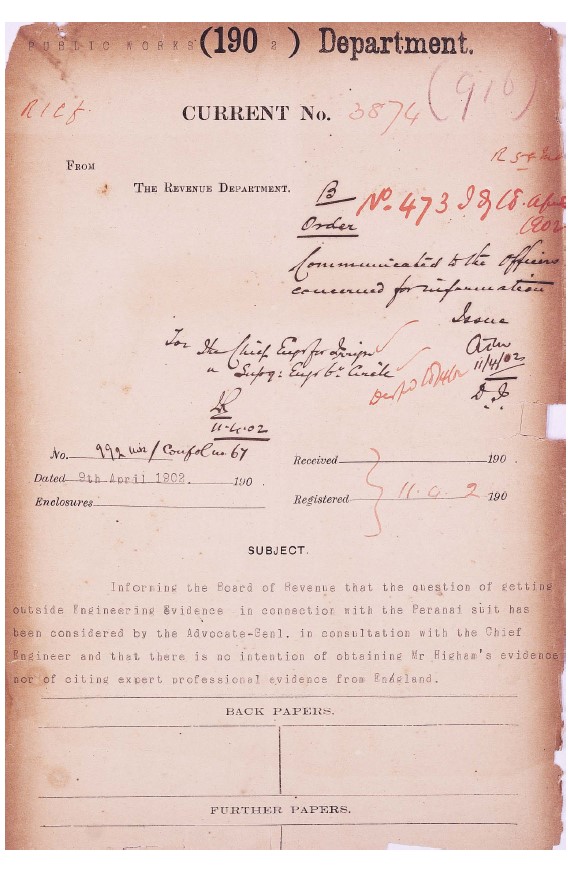 PUBLIC WORKS (190 2 ) Department.
(916)
CURRENT No. 3874
FROM
THE REVENUE DEPARTMENT.
B
Order
No. 473 I
1902
Communicated to the officers
concerned for information
Issue
11/4/02
For the Chief Engr for Irrign
" Supg: Engr 6th Circle
11-4-02
No. 992
Dated 9th April 1902. 190 .
Enclosures
Received 190 .
Registered 11. 2 190
SUBJECT.
Informing the Board of Revenue that the question of getting
outside Engineering Evidence in connection with the Peranai suit has
been considered by the Advocate-Genl. in consultation with the Chief
Engineer and that there is no intention of obtaining Mr Higham's evidence
nor of citing expert professional evidence from England.
BACK PAPERS.
FURTHER PAPERS.